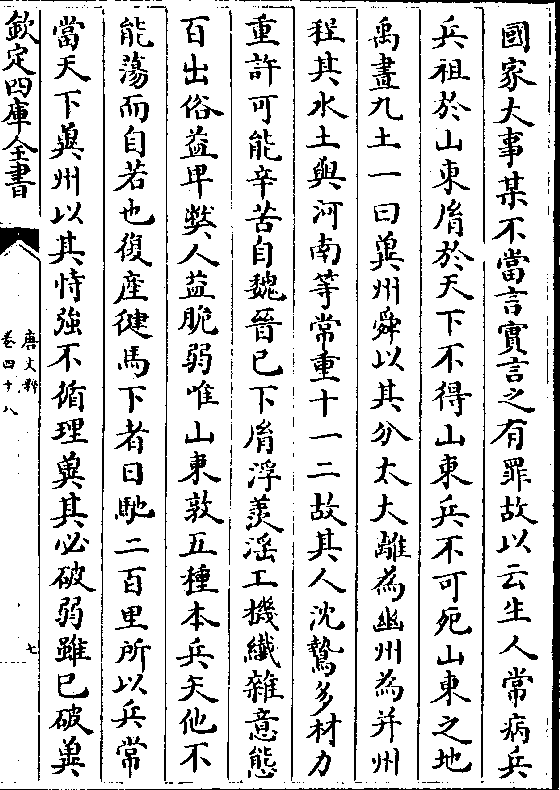 國家大事某不當言實言之有罪故以云生人常病兵
兵祖於山東胤於天下不得山東兵不可死山東之地
禹畫九土一曰兾州舜以其分太大離為幽州為并州
程其水土與河南等常重十一二故其人沈鷙多材力
重許可能辛苦自魏晉已下胤浮羨淫工機纖雜意態
百出俗益卑弊人益脆弱唯山東敦五種本兵矢他不
能蕩而自若也復產健馬下者日馳二百里所以兵常
當天下兾州以其恃強不循理兾其必破弱雖已破兾
欽定四庫全書
唐文粹
卷四十八
七